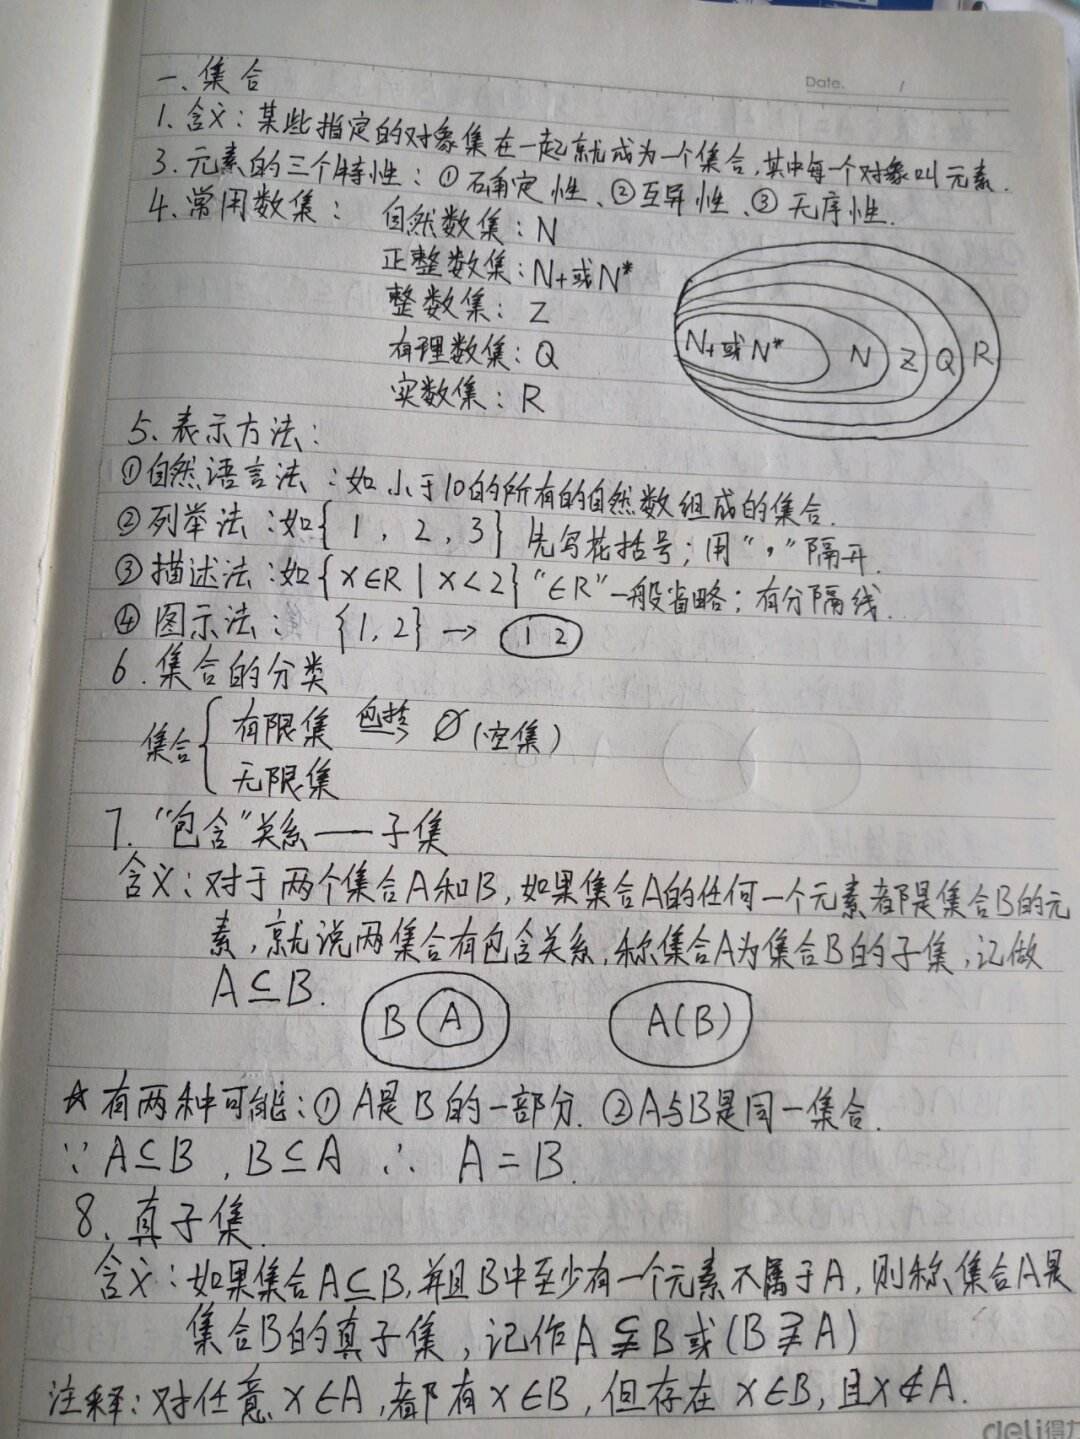 Date. /
一、集合
1、含义：某些指定的对象集在一起就成为一个集合，其中每一个对象叫元素.
3.元素的三个特性：①确定性、②互异性、③无序性.
4、常用数集： 自然数集：N
正整数集：N+或N*
整数集：Z
有理数集：Q
实数集：R
N+或N* N Z Q R
5、表示方法：
①自然语言法：如小于10的所有的自然数组成的集合.
②列举法：如{1，2，3} 先写花括号；用“，”隔开.
③描述法：如{x∈R|x<2}“∈R”一般省略；有分隔线.
④图示法： {1,2}→ 1 2
6.集合的分类
集合{有限集 包括→ ∅(空集)
无限集
7.“包含”关系——子集
含义：对于两个集合A和B，如果集合A的任何一个元素都是集合B的元
素，就说两集合有包含关系，称集合A为集合B的子集，记做
A⊆B.
B A A(B)
☆有两种可能：①A是B的一部分.②A与B是同一集合.
∵A⊆B，B⊆A ∴ A=B.
8、真子集.
含义：如果集合A⊆B,并且B中至少有一个元素不属于A，则称集合A是
集合B的真子集，记作A⫋B或(B⫌A)
注释：对任意x∈A,都有x∈B，但存在x∈B，且x∉A.
deli得力